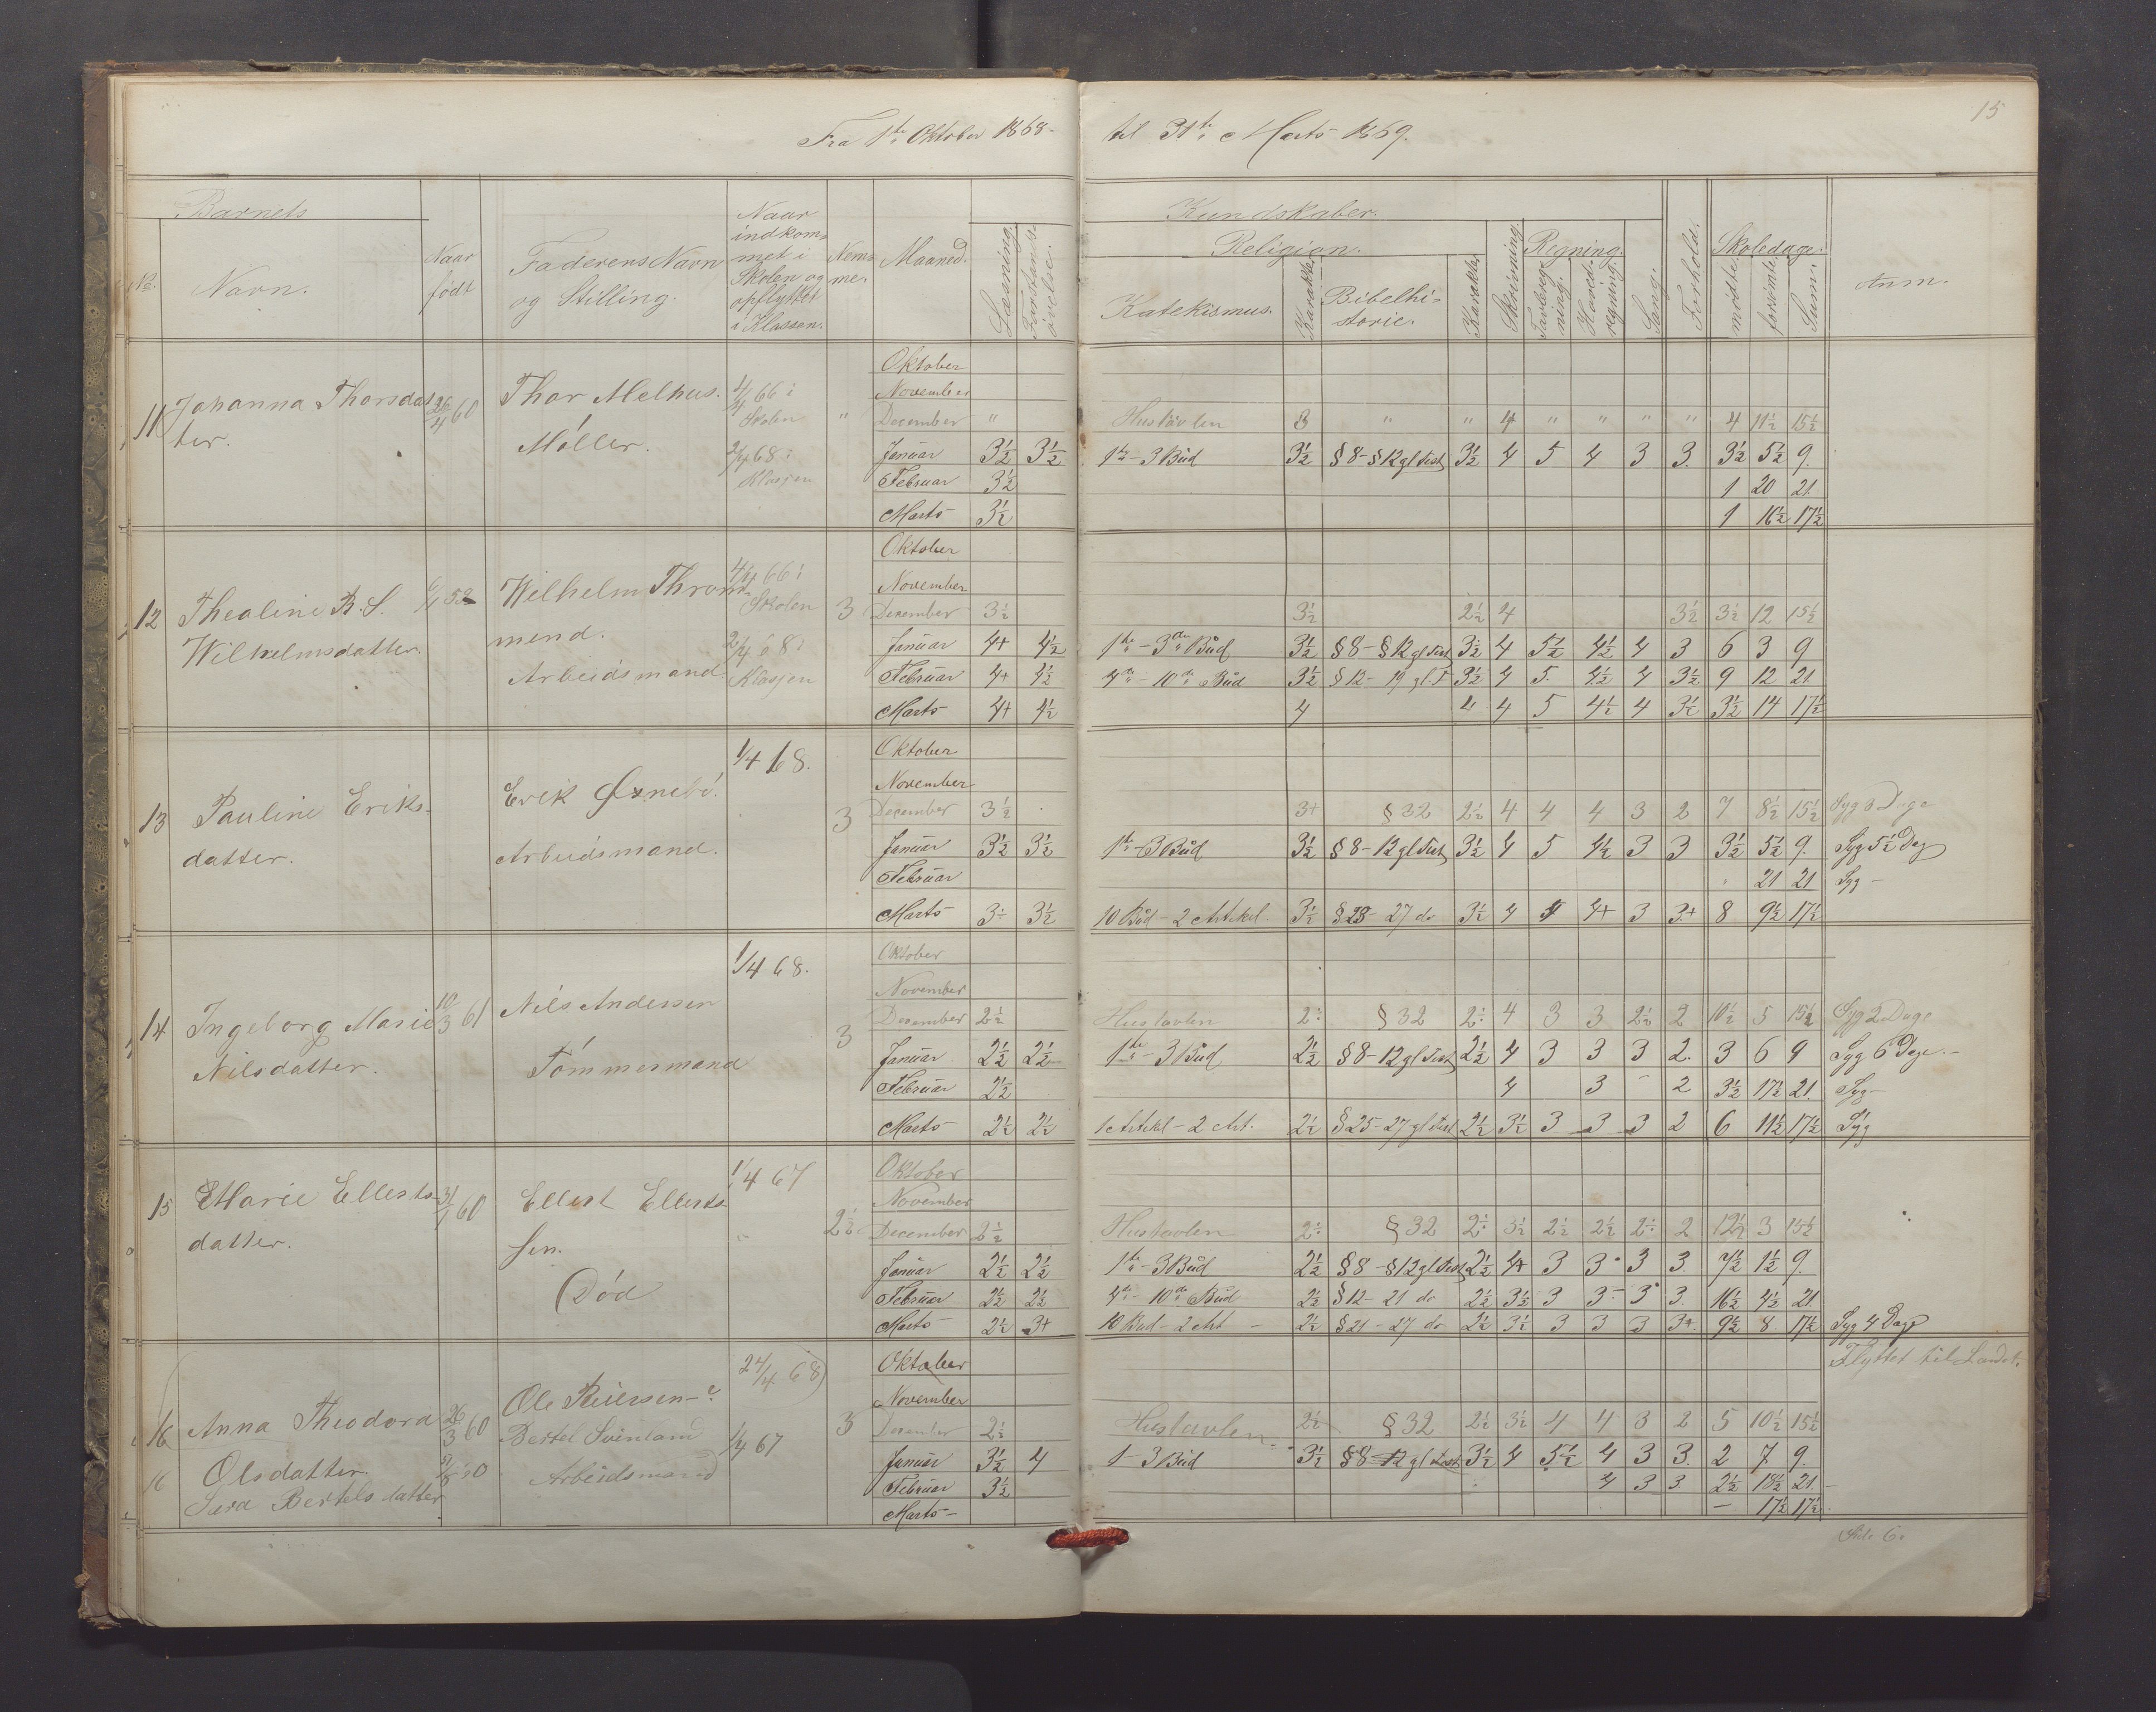 15
Fra 1ste Oktober 1868 - til 31te Marts 1869.
Barnets
No. Navn. Naar født Faderens Navn og Stilling. Naar indkommet i Skolen og opflyttet i Klassen. Nemme. Maaned. Læsning. Forstandsøvelse.
Kundskaber.
Religion. Regning. Skoledage.
Katekismus. Karakter Bibelhistorie. Karakter Skrivning Tavleregning. Hovedregning. Sang. Forhold. mødte forsømte Sum. Anm.
11 Johanna Thorsdatter. 26/4 60 Thor Melhus. Møller. 4/4 66 i Skolen 2/4 68 i Klassen "
Oktober
November
December " Hustavlen 3 " " 4 " " " " 4 11½ 15½
Januar 3½ 3½ 1ste - 3 Bud 3½ § 8 - § 12 gl Test 3½ 4 5 4 3 3. 3½ 5½ 9.
Februar 3½ 1 20 21.
Marts 3½ 1 16½ 17½
12 Thealine R. S. Wilhelmsdatter. Wilhelm Thronmend. Arbeidsmand 4/4 66 i Skolen 2/4 68 i Klassen 3
Oktober
November
December 3½ 3½ 2½ 4 3½ 3½ 12 15½
Januar 4+ 4½ 1ste - 3die Bud 3½ § 8 - § 12 gl Test 3½ 4 5½ 4½ 4 3 6 3 9
Februar 4+ 4½ 4de - 10de Bud 3½ § 12 - 19 gl. T 3½ 4 5. 4½ 4 3½ 9 12 21
Marts 4+ 4½ 4 4 4 5 4½ 4 3½ 3½ 14 17½
13 Pauline Eriksdatter. Erik Øznebø. Arbeidsmand. 1/4 68. 3
Oktober
November
December 3½ 3+ § 32 2½ 4 4 4 3 2 7 8½ 15½ Syg 6 Dage
Januar 3½ 3½ 1ste - 3 Bud 3½ § 8 - 12 gl Test 3½ 4 5 4½ 3 3 3½ 5½ 9. Syg 5½ Dag
Februar 21 21 Syg -
Marts 3÷ 3½ 10 Bud - 2 Artikel. 3½ § 23 - 27 do 3½ 4 4 4+ 3 3+ 8 9½ 17½
14 Ingeborg Marie Nilsdatter. 10/3 61 Nils Andersen Tømmermand 1/4 68. 3
Oktober
November
December 2½ Hustavlen 2÷ § 32 2÷ 4 3 3 2½ 2 10½ 5 15½ Syg 2 Dage
Januar 2½ 2½ 1ste - 3 Bud 2½ § 8 - 12 gl Test 2½ 4 3 3 3 2. 3 6 9 Syg 6 Dage. -
Februar 2½ 4 3 - 2 3½ 17½ 21. Syg -
Marts 2½ 2½ 1 Artikl - 2 Art. 2½ § 25 - 27 gl Test 2½ 3½ 3 3 3 2 6 11½ 17½ Syg
15 Marie Ellertsdatter. 31/1 60 Ellert Ellertssen. Død 1/4 67 2½
Oktober
November
December 2½ Hustavlen 2÷ § 32 2÷ 3½ 2½ 2½ 2÷ 2 12½ 3 15½
Januar 2½ 2½ 1ste - 3 Bud 2½ § 8 - § 12 gl Test 2½ 4+ 3 3 3 3. 7½ 1½ 9.
Februar 2½ 2½ 4de - 10de Bud 2½ § 12 - 21 do 2½ 3½ 3 3 3 3. 16½ 4½ 21.
Marts 2½ 3+ 10 Bud - 2 Art - 2½ § 21 - 27 do 2½ 3½ 3 3 3 3+ 9½ 8 17½ Syg 4 Dage
16 Anna Theodora Olsdatter. 26/3 60 Ole Reiersen - ? 24/4 68 3
16 Bertelsdatter Bertel Svinland Arbeidsmand 1/4 67
Oktober Flyttet til Landet.
November
December 2½ Hustavlen 2½ § 32 2½ 3½ 4 4 3 2 5 10½ 15½
Januar 3½ 4 1 - 3 Bud 3½ § 8 - 12 gl Test 3½ 4 5½ 4 3 3. 2 7 9.
Februar 3½ 4 3 3. 2½ 18½ 21. -
Marts - - 17½ 17½
Side 6.